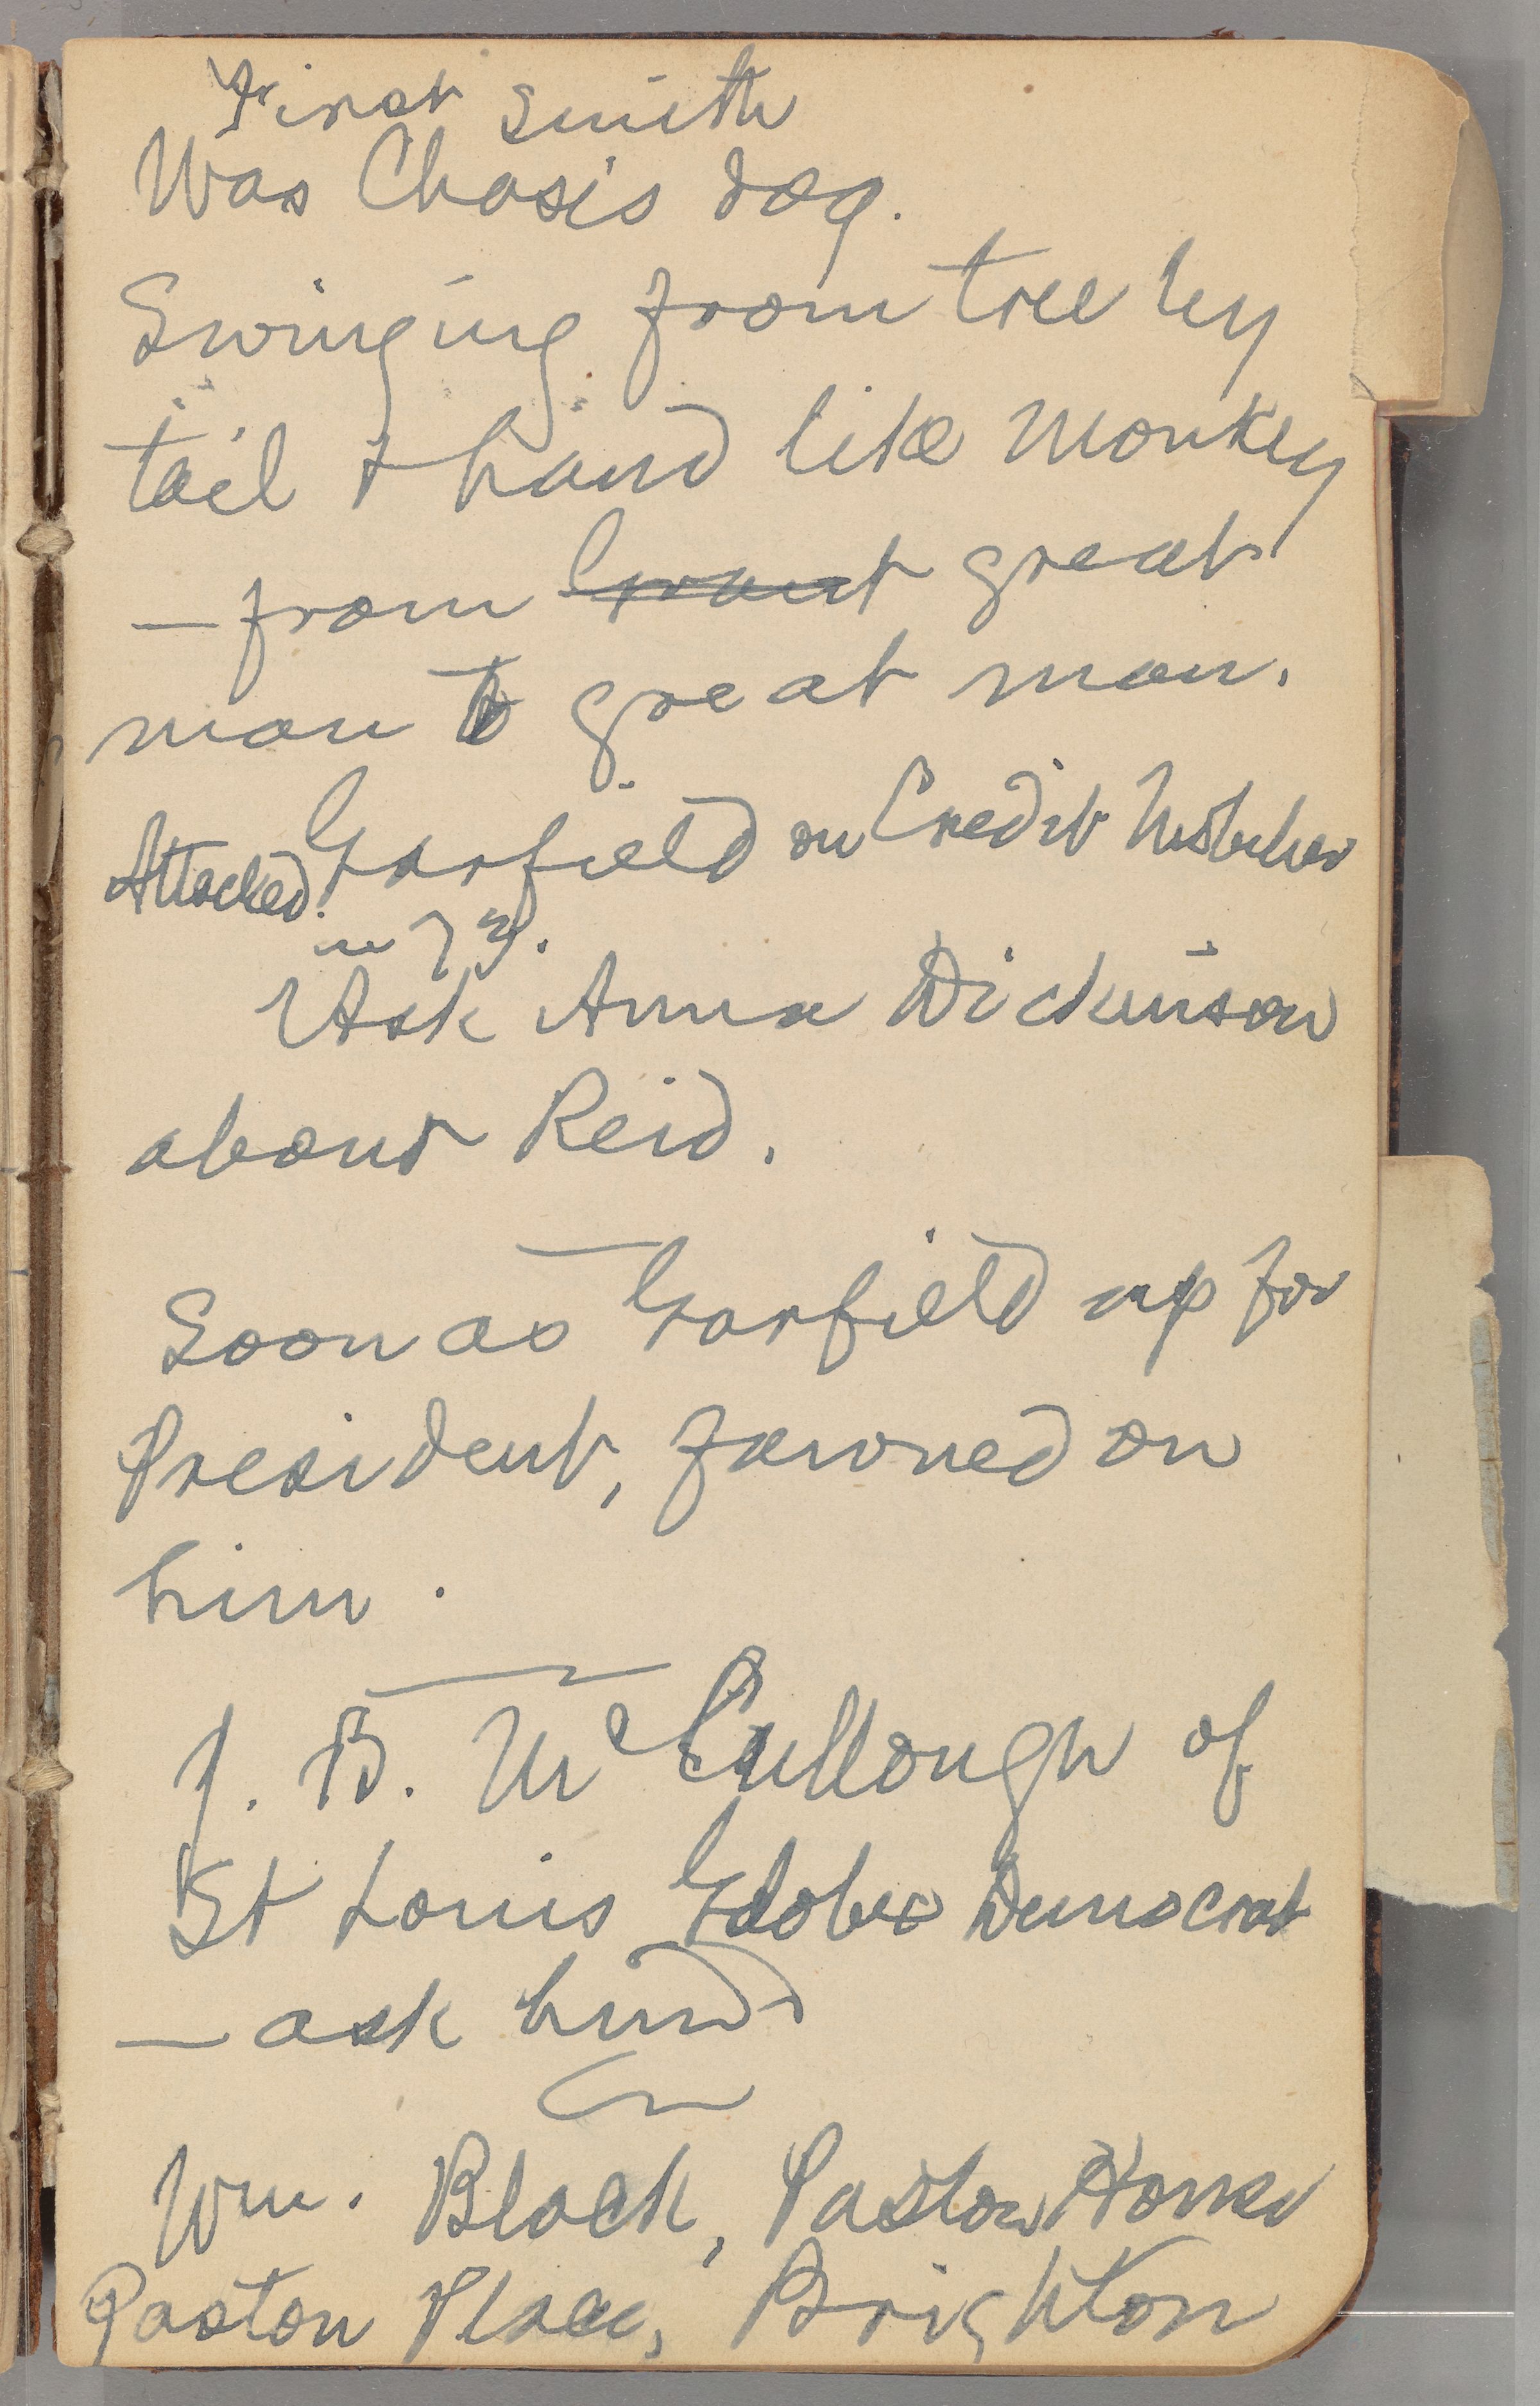 First Smith
Was Chase's dog.
Swinging from tree by
tail & hand like monkey
— from Grant great
man to great man.
Attacked Garfield on Credit Mobelier
in 73.
Ask Anna Dickinson
about Reid.
Soon as Garfield up for
President, fawned on
him.
J. B. McCullough of
St Louis Globe Democrat
— ask him
Wm. Black, Paston House
Paston Place, Brighton